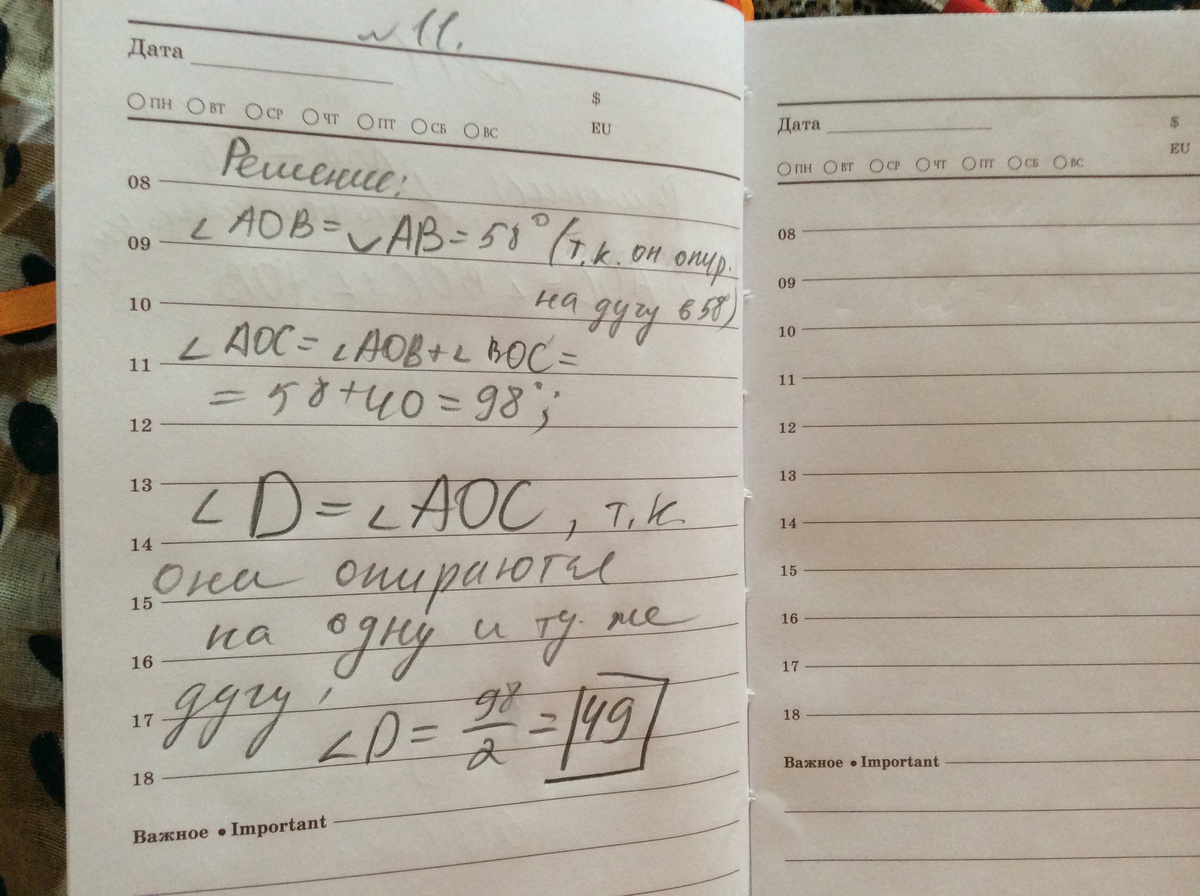 № 11.
Дата
$
ПН ВТ СР ЧТ ПТ СБ ВС
EU
Решение:
08
∠AOB = ◡AB = 58° (т.к. он опир.
09
на дугу в 58)
10
∠AOC = ∠AOB + ∠BOC =
11
= 58 + 40 = 98°;
12
13
∠D = ∠AOC, т.к.
14
они опираются
15
на одну и ту же
16
дугу;
17
∠D = 98/2 = 49
18
Важное • Important
Дата
$
EU
ПН ВТ СР ЧТ ПТ СБ ВС
08
09
10
11
12
13
14
15
16
17
18
Важное • Important